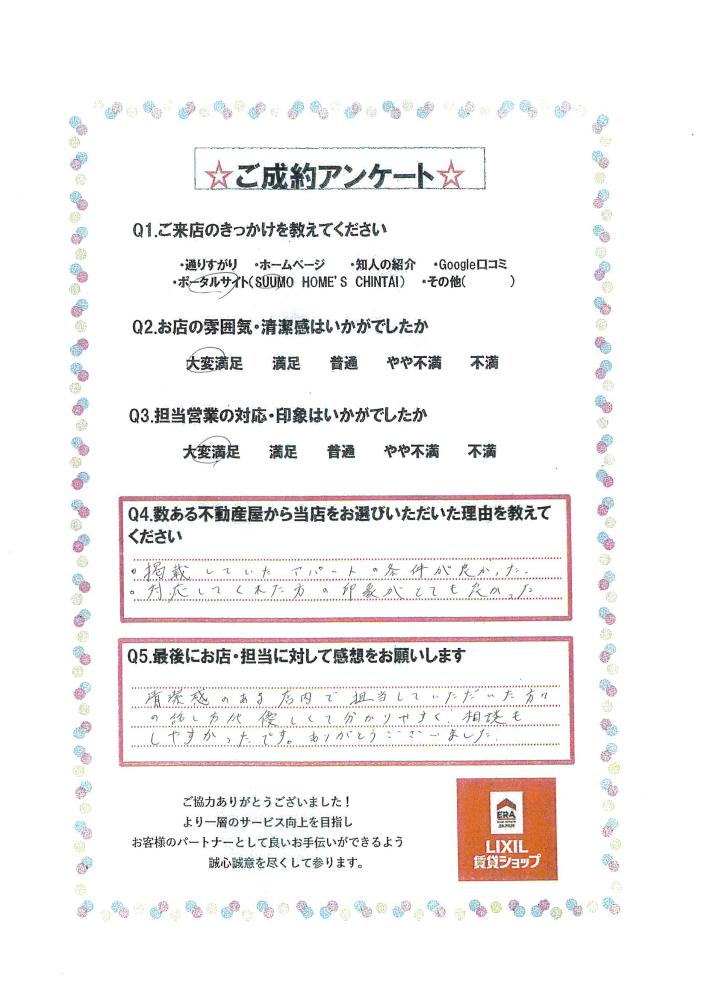 ☆ご成約アンケート☆
Q1.ご来店のきっかけを教えてください
・通りすがり ・ホームページ ・知人の紹介 ・Google口コミ
・ポータルサイト(SUUMO HOME'S CHINTAI) ・その他( )
Q2.お店の雰囲気・清潔感はいかがでしたか
大変満足 満足 普通 やや不満 不満
Q3.担当営業の対応・印象はいかがでしたか
大変満足 満足 普通 やや不満 不満
Q4.数ある不動産屋から当店をお選びいただいた理由を教えて
ください
。掲載していたアパートの条件が良かった.
。対応してくれた方の印象がとても良かった
Q5.最後にお店・担当に対して感想をお願いします
清潔感のある店内で担当していただいた方々
の話し方が優しくて分かりやすく、相談も
しやすかったです。ありがとうございました.
ご協力ありがとうございました!
より一層のサービス向上を目指し
お客様のパートナーとして良いお手伝いができるよう
誠心誠意を尽くして参ります。
ERA
REAL ESTATE
JAPAN
LIXIL
賃貸ショップ